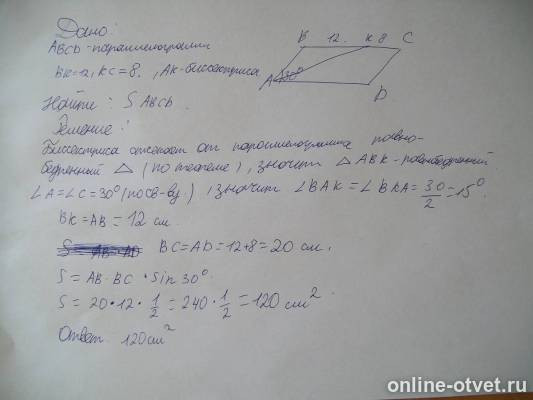 Дано:
ABCD - параллелограмм
BK=12, KC=8. , AK-биссектриса
Найти: S ABCD.
B 12. K 8 C
A 30°
D
Решение:
Биссектриса отсекает от параллелограмма равно-
бедренный △ (по теореме), значит △ ABK - равнобедренный
∠A=∠C=30° (по св-ву.) , значит ∠BAK=∠BKA=30/2=15°
BK=AB=12 см
BC=AD=12+8=20 см.
S= AB·BC·Sin 30°
S= 20·12·1/2=240·1/2=120 см²
Ответ: 120см²
online-otvet.ru